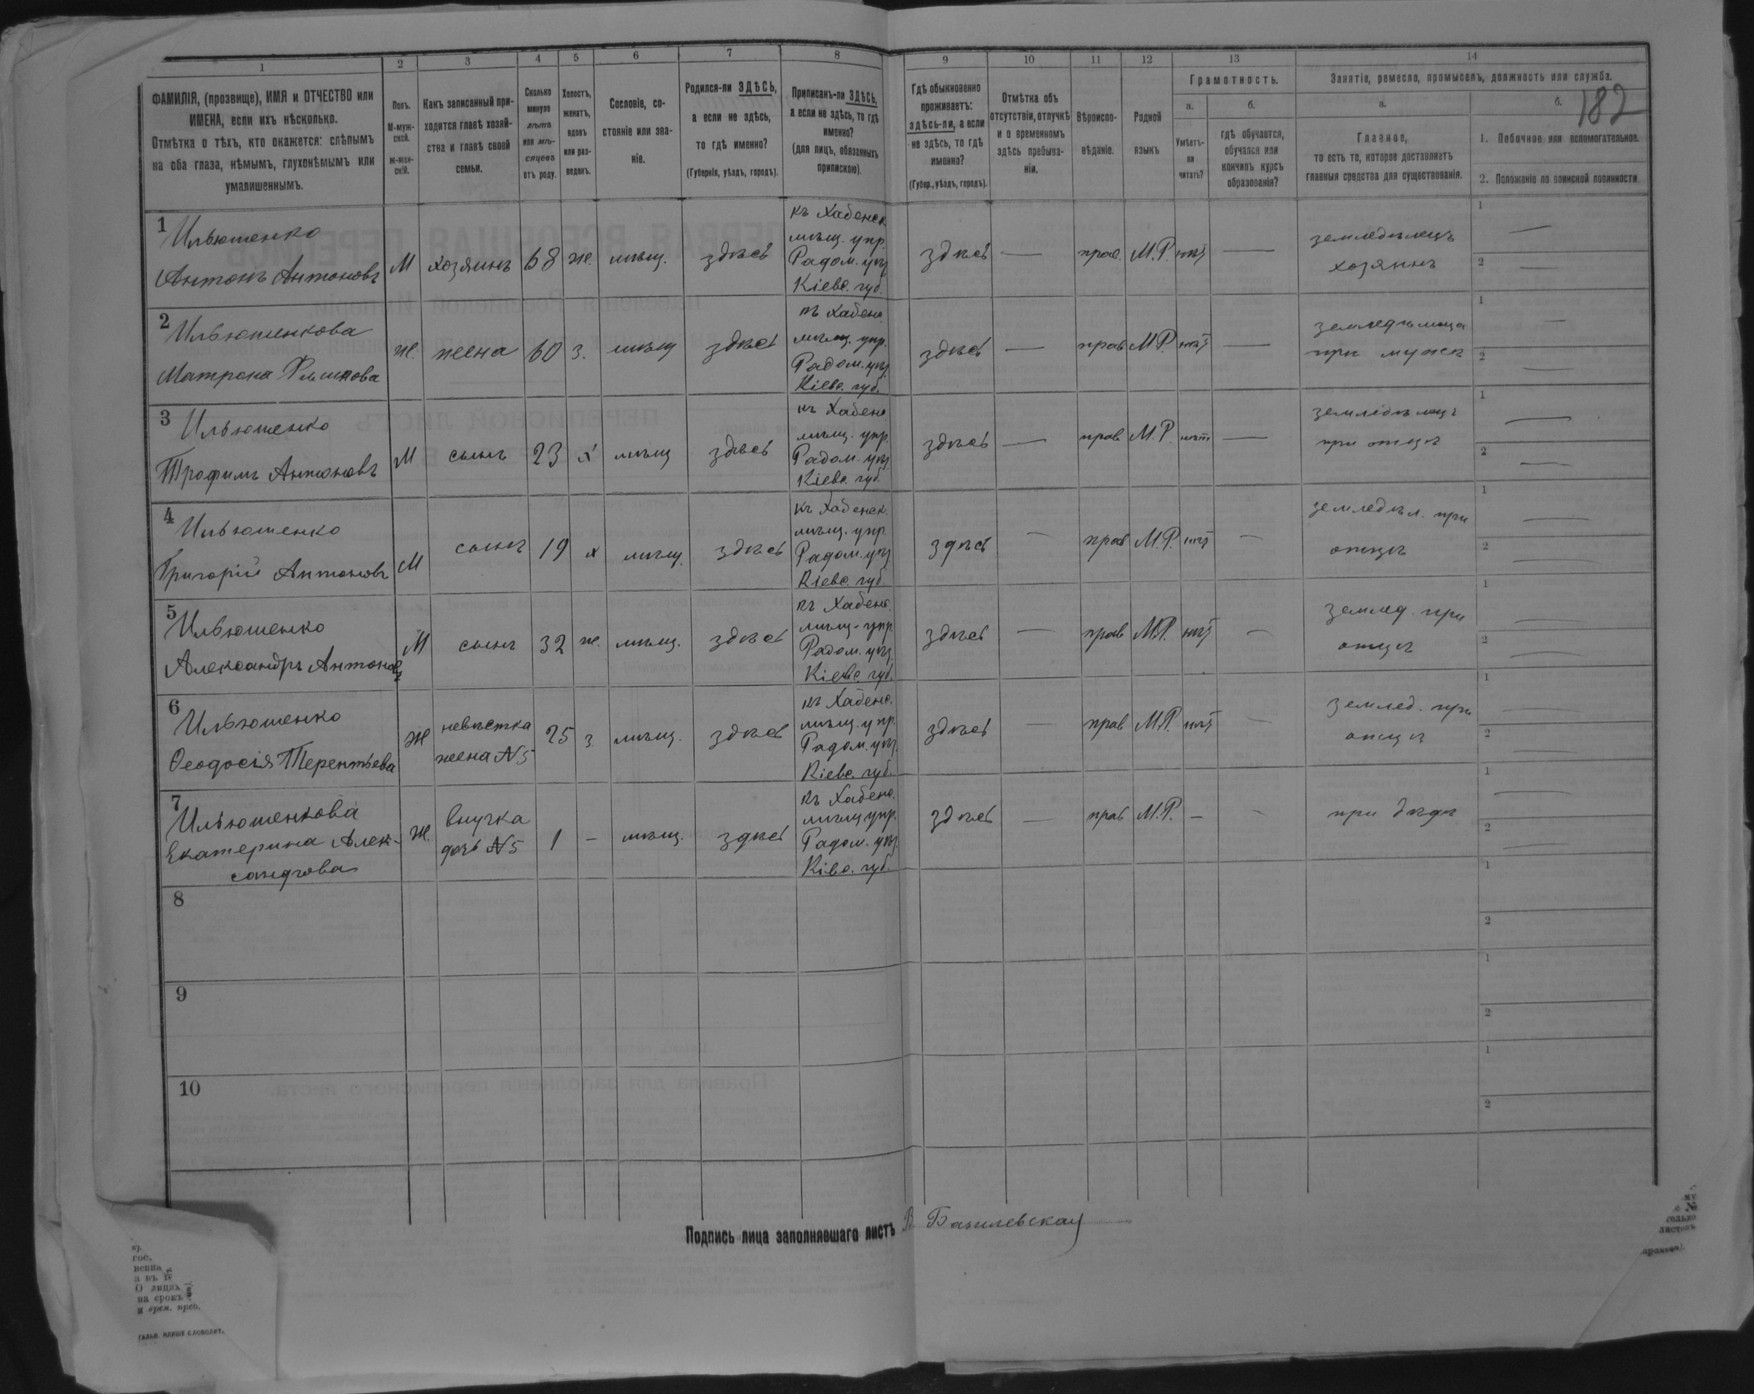 1 2 3 4 5 6 7 8 9 10 11 12 13 14
182
ФАМИЛІЯ, (прозвище), ИМЯ и ОТЧЕСТВО или
ИМЕНА, если ихъ нѣсколько.
Отмѣтка о тѣхъ, кто окажется: слѣпымъ
на оба глаза, нѣмымъ, глухонѣмымъ или
умалишеннымъ.
Полъ.
М-муж-
ской.
Ж-жен-
скій.
Какъ записанный при-
ходится главѣ хозяй-
ства и главѣ своей
семьи.
Сколько
минуло
лѣтъ
или мѣ-
сяцевъ
отъ роду.
Холостъ,
женатъ,
вдовъ
или раз-
веденъ.
Сословіе, со-
стояніе или зва-
ніе.
Родился-ли ЗДѢСЬ,
а если не здѣсь,
то гдѣ именно?
(Губернія, уѣздъ, городъ).
Приписанъ-ли ЗДѢСЬ,
а если не здѣсь, то гдѣ
именно?
(для лицъ, обязанныхъ
припискою).
Гдѣ обыкновенно
проживаетъ:
здѣсь-ли, а если
не здѣсь, то гдѣ
именно?
(Губер., уѣздъ, городъ).
Отмѣтка объ
отсутствіи, отлучкѣ
и о временномъ
здѣсь пребыва-
ніи.
Вѣроиспо-
вѣданіе.
Родной
языкъ
Грамотность.
а.
Умѣетъ-
ли
читать?
б.
гдѣ обучается,
обучался или
кончилъ курсъ
образованія?
Занятіе, ремесло, промыселъ, должность или служба.
а.
Главное,
то есть то, которое доставляетъ
главныя средства для существованія.
б.
1. Побочное или вспомогательное.
2. Положеніе по воинской повинности
1 Ильюшенко
Антонъ Антоновъ
М хозяинъ 68 ж. мѣщ. здѣсь
къ Хабенск.
мѣщ. упр.
Радом. уѣз.
Кіевс. губ.
здѣсь — прав. М.Р. нѣт —
земледѣлецъ
хозяинъ
1 —
2 —
2 Ильюшенкова
Матрона
ж. жена 60 з. мѣщ здѣсь
къ Хабенс.
мѣщ. упр.
Радом. уѣз.
Кіевс. губ.
здѣсь — прав М.Р. нѣт —
при мужѣ
1 —
2 —
3 Ильюшенко
Трофимъ Антоновъ
М сынъ 23 х мѣщ здѣсь
къ Хабенс
мѣщ. упр.
Радом. уѣз.
Кіевс. губ.
здѣсь — прав М.Р. нѣт —
земледѣлец
при отцѣ
1 —
2 —
4 Ильюшенко
Григорій Антоновъ
М сынъ 19 х мѣщ. здѣсь
къ Хабенск.
мѣщ. упр.
Радом. уѣз
Кіевс. губ.
здѣсь — прав М.Р. нѣт —
земледѣл. при
отцѣ
1 —
2 —
5 Ильюшенко
Александръ Антоновъ
М сынъ 32 ж. мѣщ. здѣсь
къ Хабенс.
мѣщ. упр
Радом. уѣз.
Кіевс. губ.
здѣсь — прав М.Р. нѣт —
землед. при
отцѣ
1 —
2 —
6 Ильюшенко
Ѳеодосія Терентьева
Ж невѣстка
жена №5
25 з. мѣщ. здѣсь
къ Хабенс.
мѣщ. упр.
Радом. уѣз.
Кіевс. губ.
здѣсь — прав М.Р. нѣт —
землед. при
отцѣ
1 —
2 —
7 Ильюшенкова
Екатерина Алек-
сандрова
Ж. внучка
дочь №5
1 — мѣщ. здѣсь
къ Хабенс.
мѣщ упр.
Радом. уѣз.
Кіевс. губ.
здѣсь — прав М.Р. — —
при дѣдѣ
1 —
2 —
8
1
2
9
1
2
10
1
2
Подпись лица заполнявшаго листъ